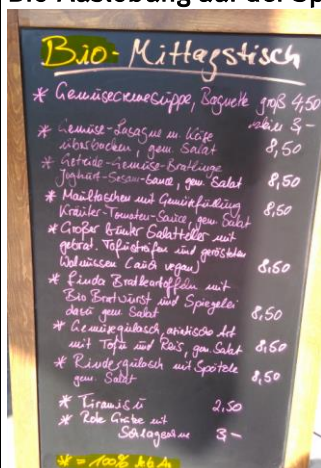 Bio-Mittagstisch
* Gemüsecremesuppe, Baguette groß 4,50
klein 3,-
* Gemüse-Lasagne m. Käse
überbacken, gem. Salat 8,50
* Getreide-Gemüse-Bratlinge
Joghurt-Sesam-Sauce, gem. Salat 8,50
* Maultaschen mit Gemüsefüllung
Kräuter-Tomaten-Sauce, gem. Salat 8,50
* Großer bunter Salatteller mit
gebrat. Tofustreifen und gerösteten
Walnüssen (auch vegan) 8,50
* Linda Bratkartoffeln mit
Bio Bratwurst und Spiegelei
dazu gem Salat 8,50
* Gemüsegulasch, asiatische Art
mit Tofu und Reis, gem. Salat 8,50
* Rindergulasch mit Spätzle
gem. Salat 8,50
* Tiramisu 2,50
* Rote Grütze mit
Schlagsahne 3,-
* = 100%